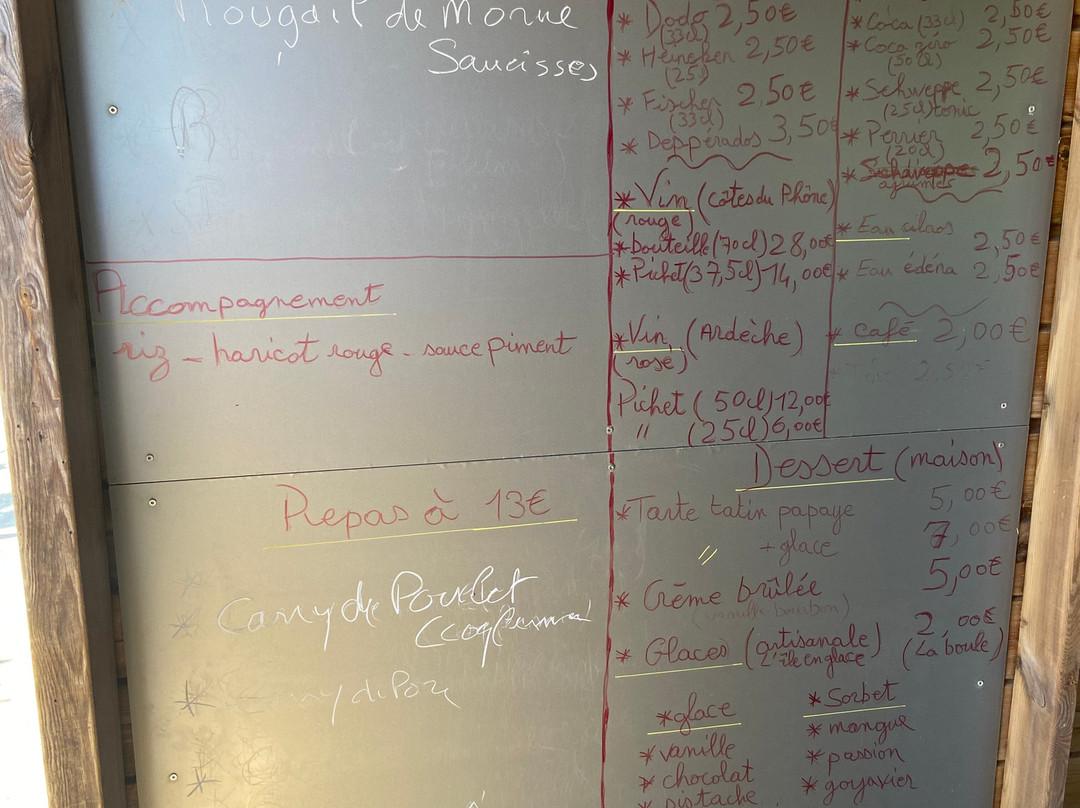 Rougail de Morue
Saucisses
Accompagnement
riz - haricot rouge - sauce piment
Repas à 13€
* Cary de Poulet
(Coq
* Dodo 2,50€
(33cl)
* Heineken 2,50€
(25)
* Fischer 2,50€
(33cl)
* Déppérados 3,50€
* Vin (côtes du Rhône)
(rouge)
* bouteille (70cl) 28,00€
* Pichet (37,5cl) 14,00€
* Vin (Ardèche)
(rosé)
Pichet (50cl) 12,00€
" (25cl) 6,00€
* Coca (33cl) 2,50€
* Coca zéro 2,50€
* Schweppe 2,50€
(25cl) tonic
* Perrier 2,50€
(20cl)
* Schweppe 2,50€
agrumes
* Eau cilaos 2,50€
* Eau édéna 2,50€
* café 2,00€
Dessert (maison)
* Tarte tatin papaye 5,00€
" + glace 7,00€
* Crème brûlée 5,00€
(vanille bourbon)
* Glaces (artisanale) 2,00€
L'île en glace (La boule)
* glace
* vanille
* chocolat
* pistache
* Sorbet
* mangue
* passion
* goyavier